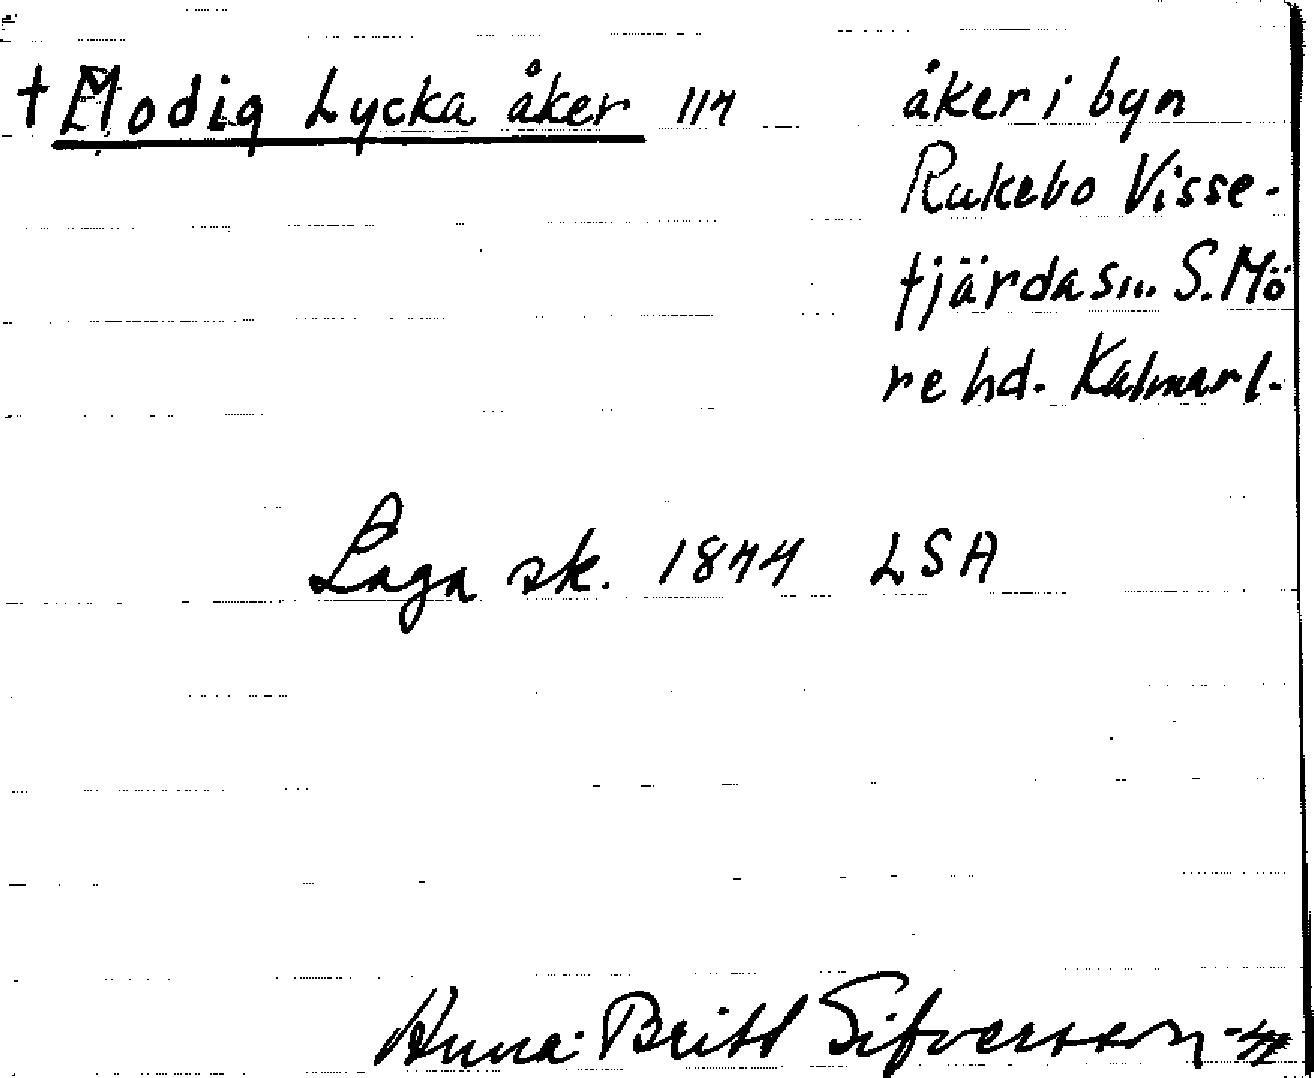 † Modig Lycka åker 114 åker i byn
Rukebo Visse-
fjärda sn. S. Mö
re hd. Kalmar l.
Laga sk. 1844 LSA
Anna-Britt Sifversson -